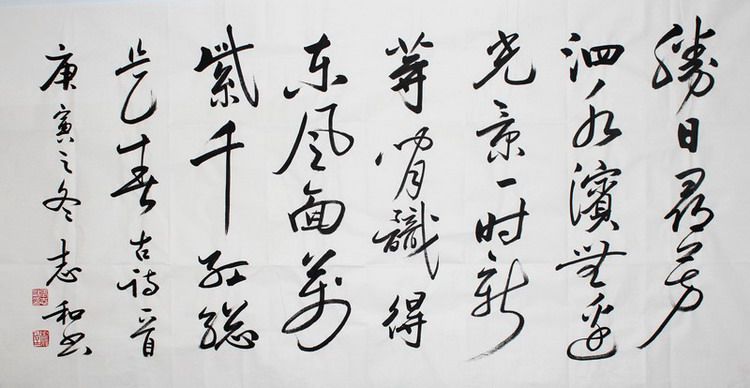 勝日尋芳
泗水濱無邊
光景一时新
等閒識得
東風面萬
紫千紅總
是春 古詩一首
庚寅之冬 志和書